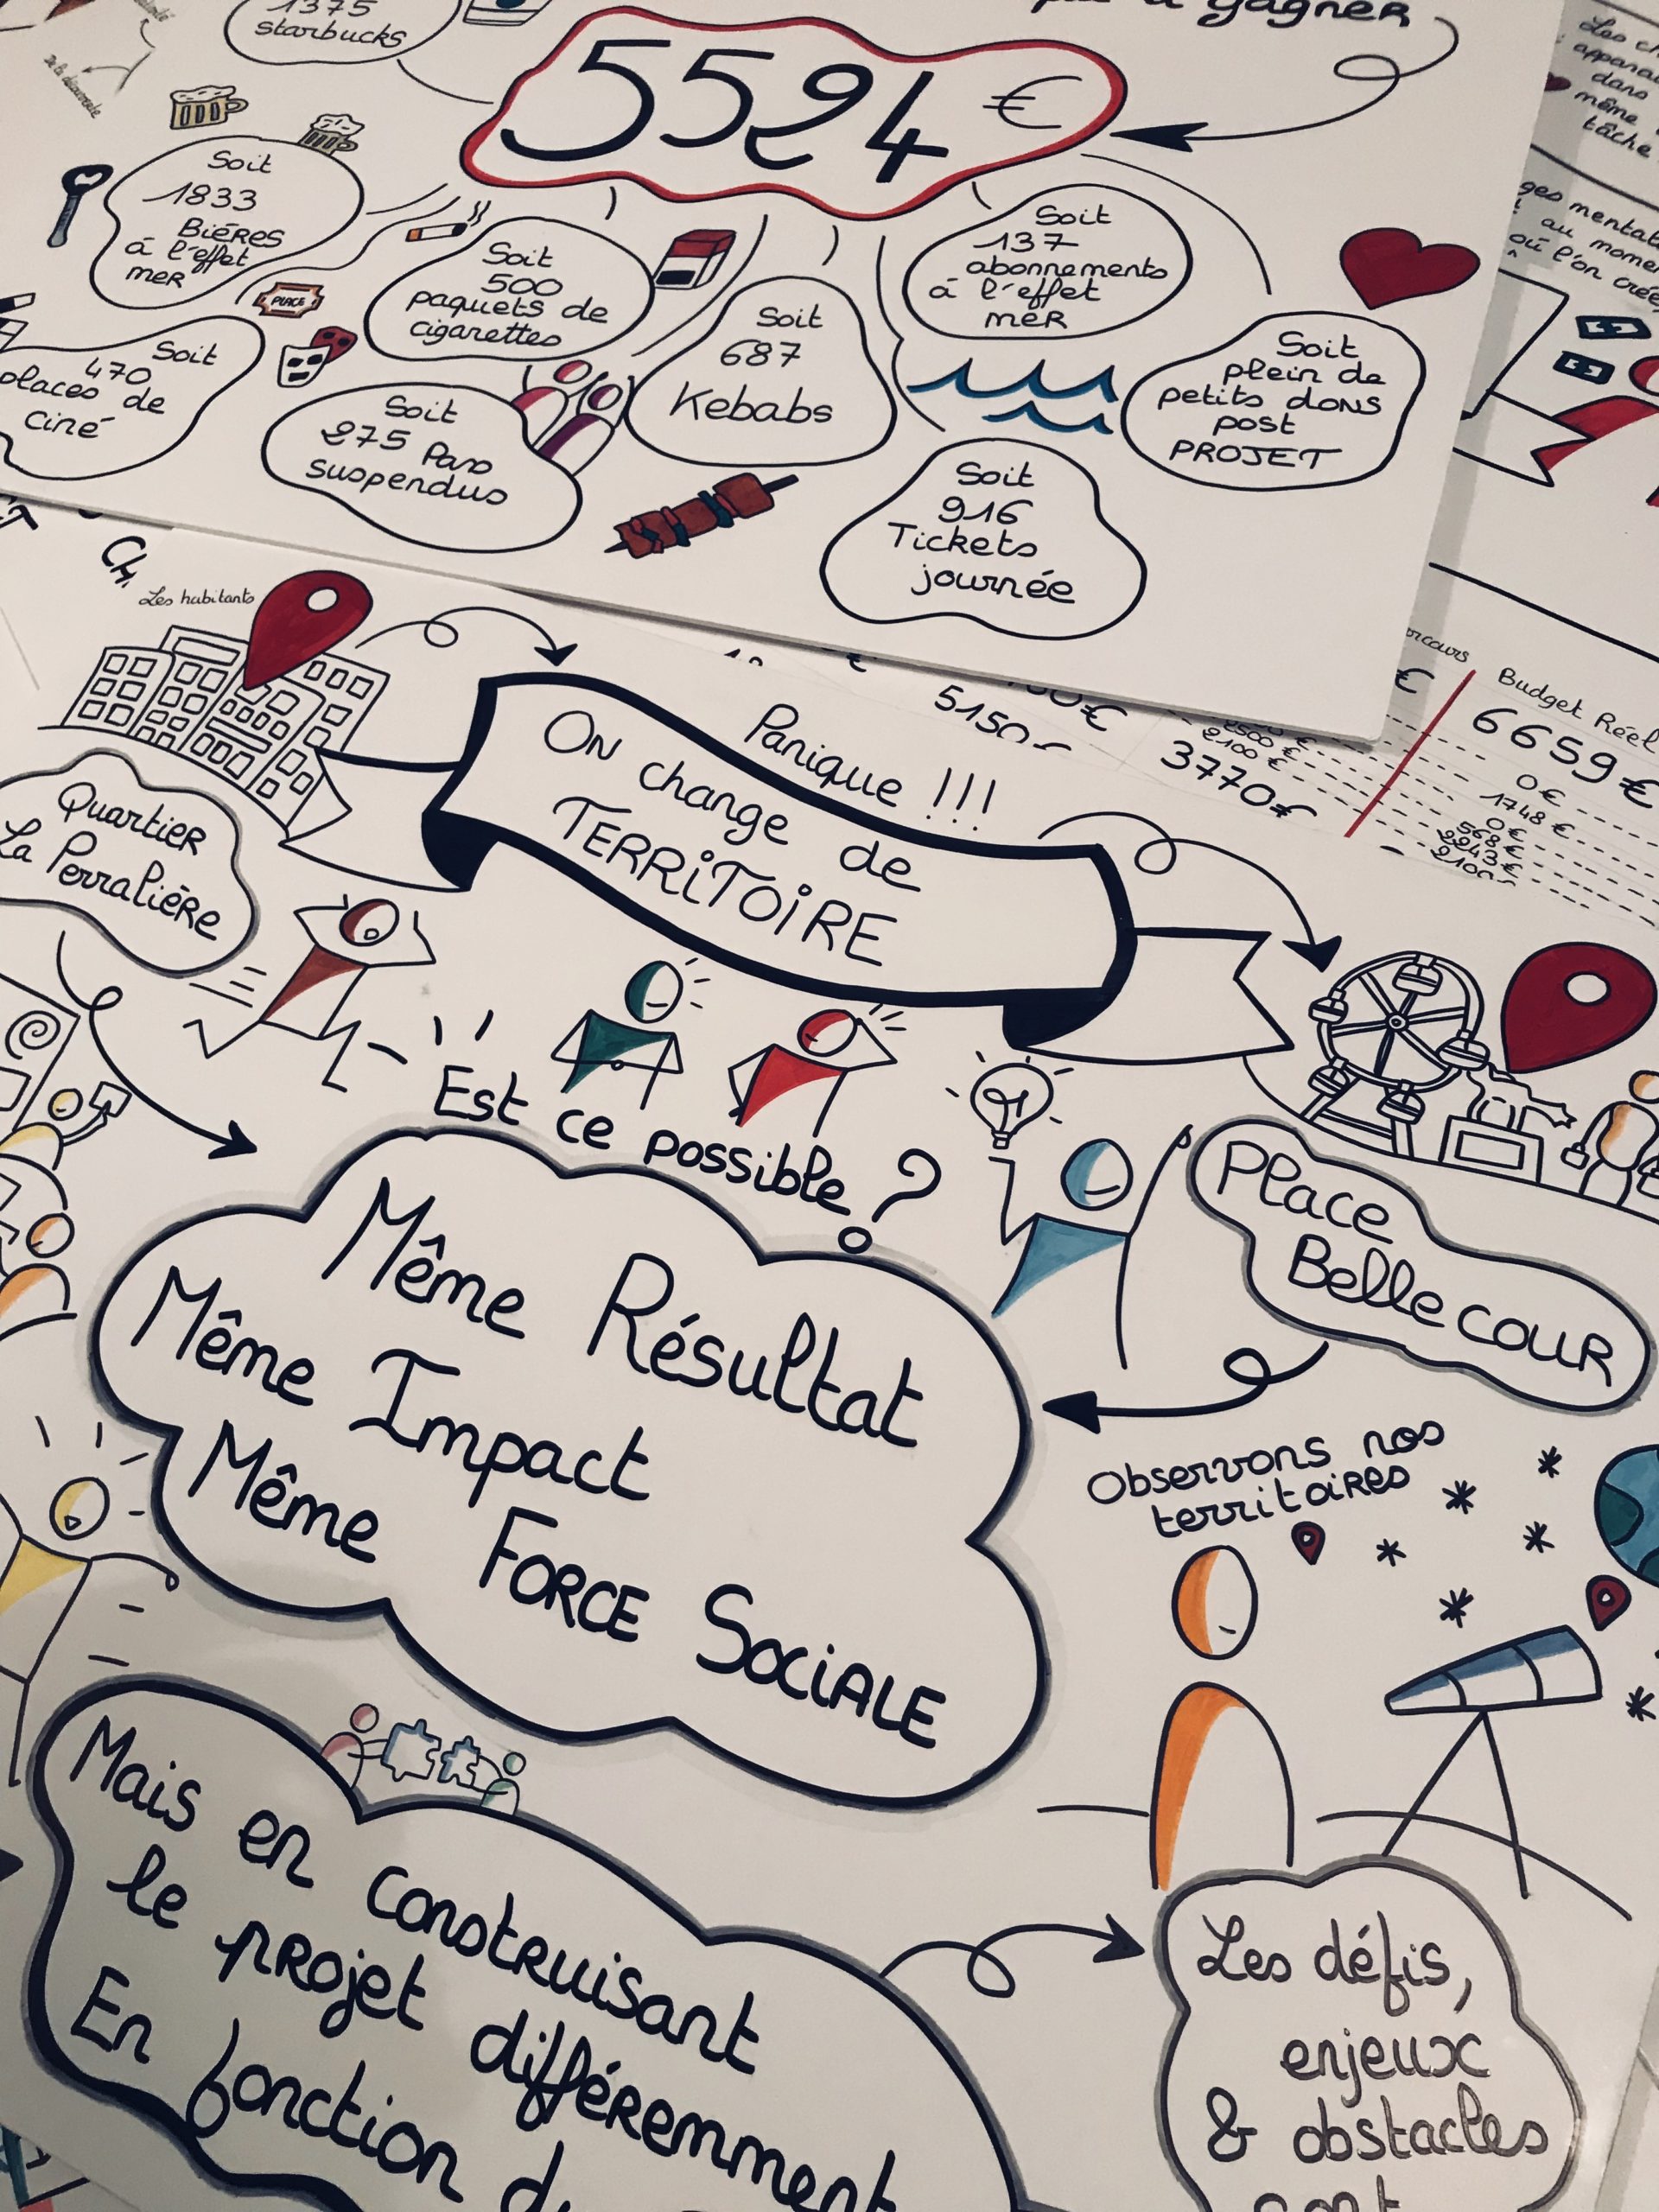 à gagner
1375
starbucks
5524 €
Soit
1833
Bières
à l'effet
mer
PLACE
Soit
500
paquets de
cigarettes
Soit
687
Kebabs
Soit
137
abonnements
à l'effet
mer
Soit
plein de
petits dons
post
PROJET
Soit
470
places de
ciné
Soit
275 Pass
suspendus
Soit
916
Tickets
journée
Les
dans
même
tâche
au
où l'on
Les habitants
Quartier
La Perralière
Panique !!!
On change de
TERRiTOiRE
5150
3770€
2500 €
2100 €
Budget Réel
6659€
0€
1748 €
0€
568 €
2243 €
2100
Est ce possible ?
Place
Bellecour
Même Résultat
Même Impact
Même Force Sociale
Observons nos
territoires
Mais en construisant
le projet différemment
En fonction
Les défis,
enjeux
& obstacles